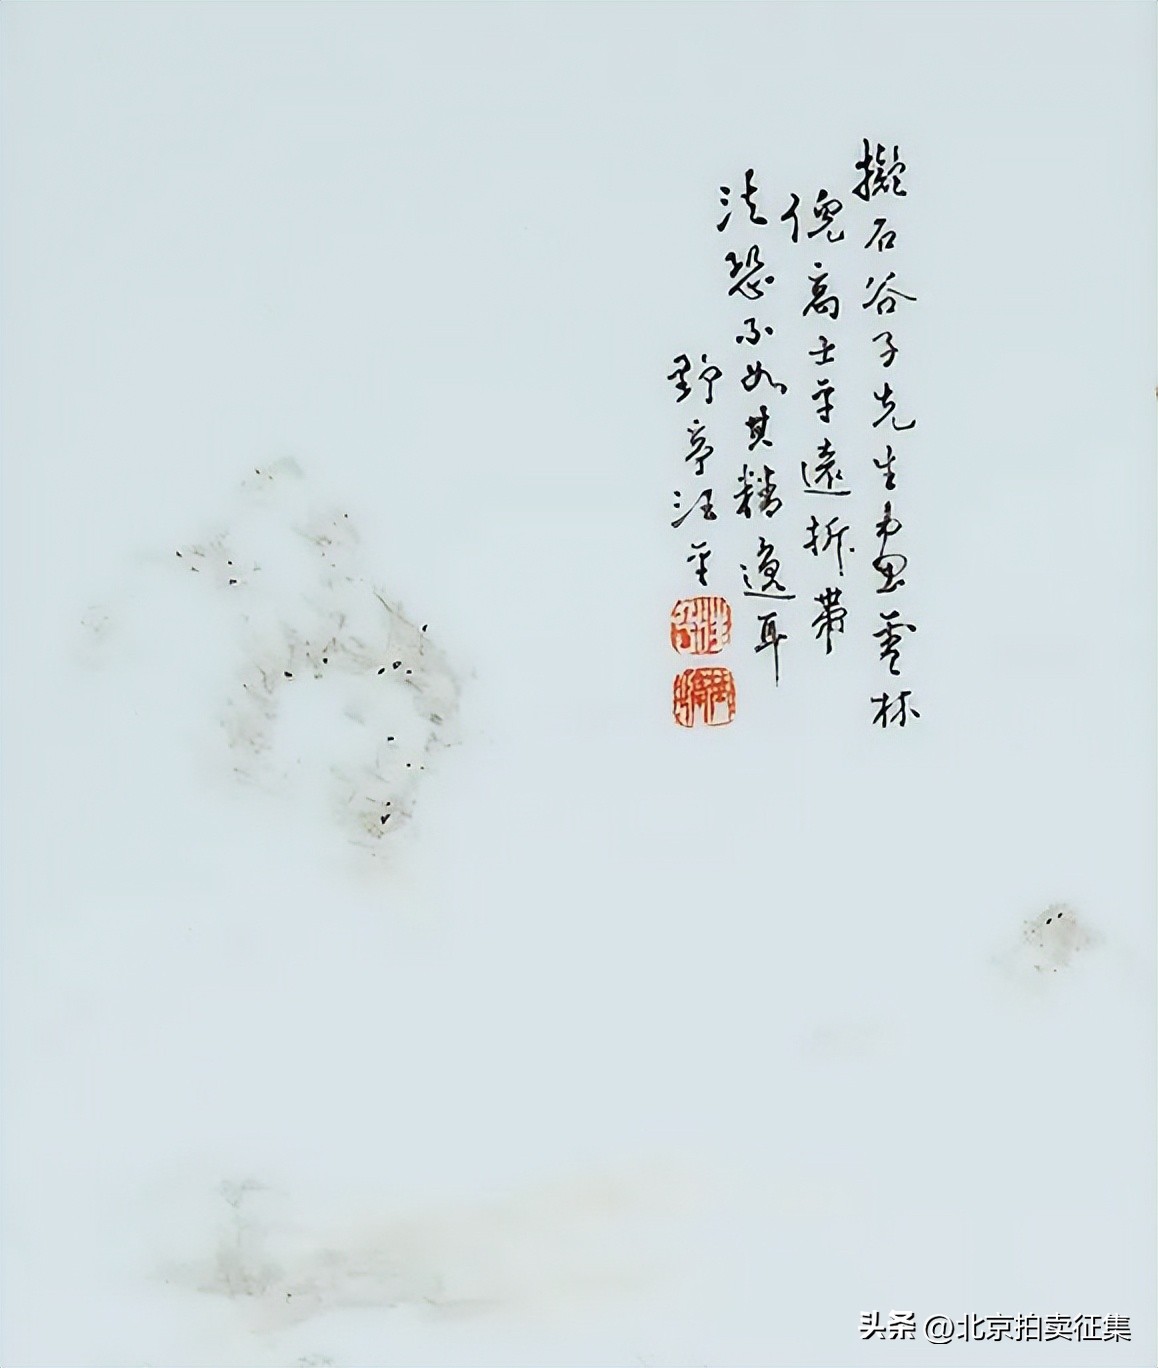 擬石谷子先生畫雲林
倪高士平遠折帶
法恐不如其精逸耳
野亭汪平
汪平
头条 @北京拍卖征集